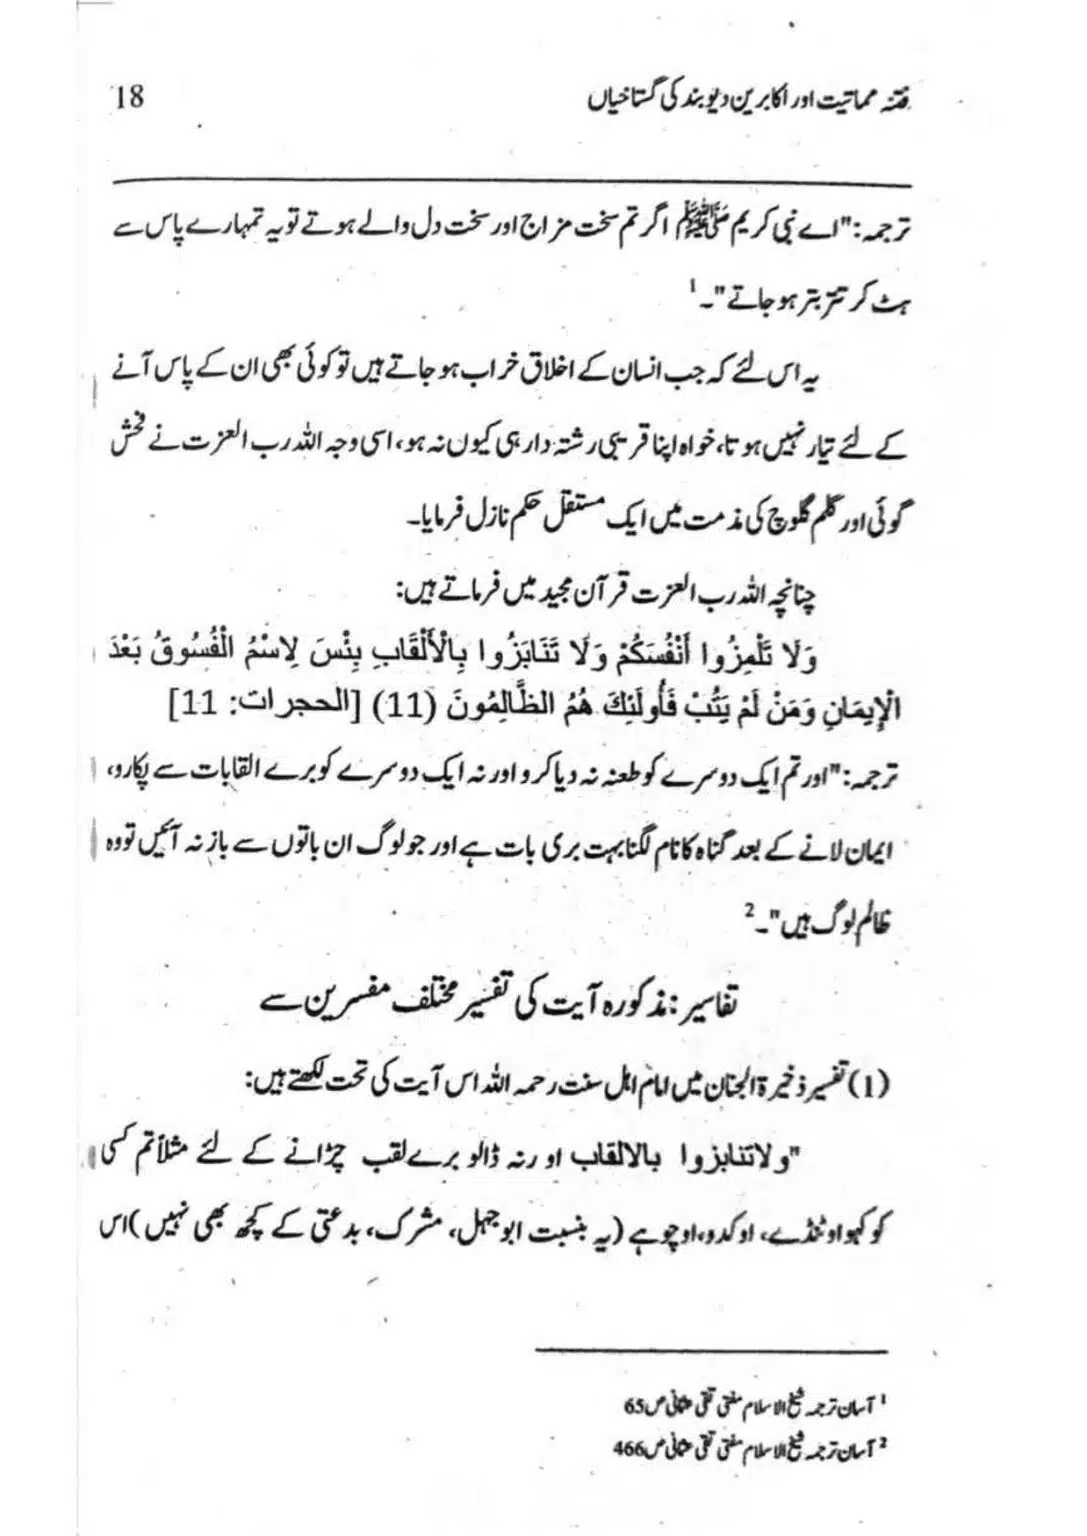 فتنہ مماتیت اور اکابرین دیوبند کی گستاخیاں 18
ترجمہ: "اے نبی کریم ﷺ اگر تم سخت مزاج اور سخت دل والے ہوتے تو یہ تمہارے پاس سے
ہٹ کر تتر بتر ہو جاتے"۔1
یہ اس لئے کہ جب انسان کے اخلاق خراب ہو جاتے ہیں تو کوئی بھی ان کے پاس آنے
کے لئے تیار نہیں ہوتا، خواہ اپنا قریبی رشتہ دار ہی کیوں نہ ہو، اسی وجہ اللہ رب العزت نے فحش
گوئی اور گلم گلوچ کی مذمت میں ایک مستقل حکم نازل فرمایا۔
چنانچہ اللہ رب العزت قرآن مجید میں فرماتے ہیں:
وَلَا تَلْمِزُوا أَنْفُسَكُمْ وَلَا تَنَابَزُوا بِالْأَلْقَابِ بِئْسَ لِاسْمُ الْفُسُوقُ بَعْدَ
الْإِيمَانِ وَمَنْ لَمْ يَتُبْ فَأُولَئِكَ هُمُ الظَّالِمُونَ (11) [الحجرات: 11]
ترجمہ: "اور تم ایک دوسرے کو طعنہ نہ دیا کرو اور نہ ایک دوسرے کو برے القابات سے پکارو،
ایمان لانے کے بعد گناہ کا نام لگنا بہت بری بات ہے اور جو لوگ ان باتوں سے باز نہ آئیں تو وہ
ظالم لوگ ہیں"۔2
تفاسیر: مذکورہ آیت کی تفسیر مختلف مفسرین سے
(1) تفسیر ذخیرۃ الجنان میں امام اہل سنت رحمہ اللہ اس آیت کی تحت لکھتے ہیں:
"ولاتنابزوا بالالقاب اور نہ ڈالو برے لقب چڑانے کے لئے مثلاً تم کسی
کو کہو او ٹنڈے، او کدو، او چوہے (یہ بنسبت ابو جہل، مشرک، بدعتی کے کچھ بھی نہیں) اس
1 آسان ترجمہ شیخ الاسلام مفتی تقی عثمانی ص65
2 آسان ترجمہ شیخ الاسلام مفتی تقی عثمانی ص466